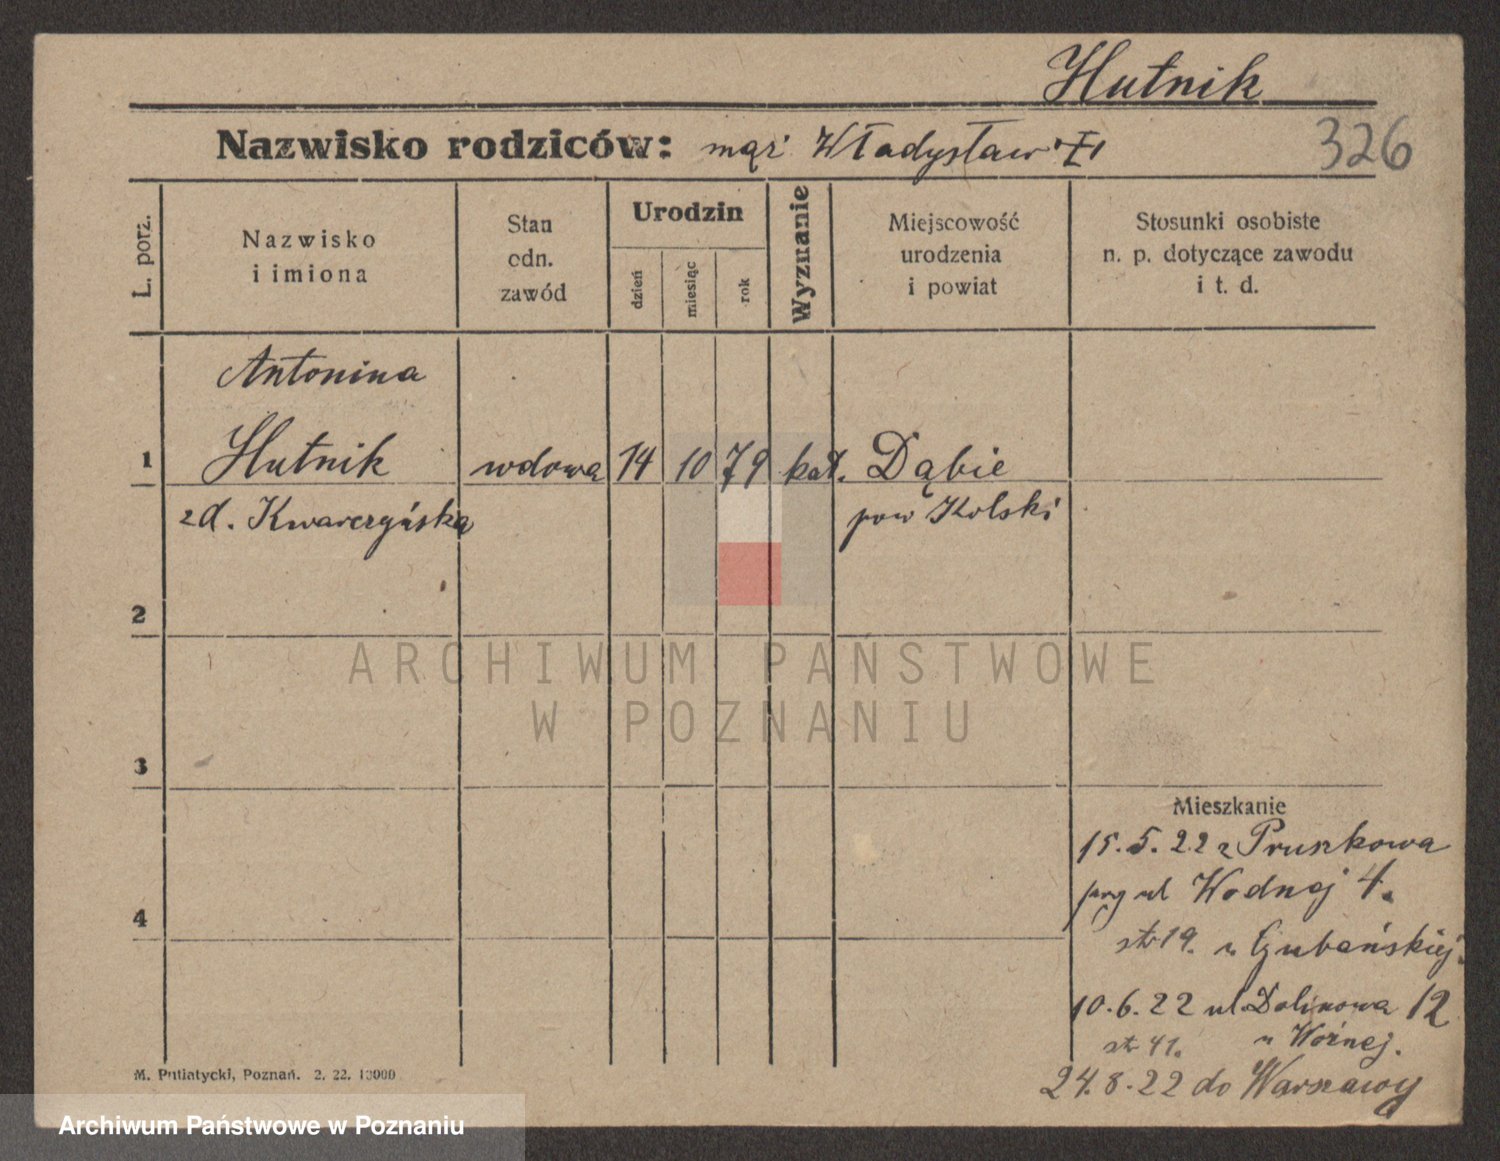 Hutnik
326
Nazwisko rodziców: mąż Władysław
L. porz.
Nazwisko
i imiona
Stan
odn.
zawód
Urodzin
dzień
miesiąc
rok
Wyznanie
Miejscowość
urodzenia
i powiat
Stosunki osobiste
n. p. dotyczące zawodu
i t. d.
Antonina
1 Hutnik wdowa 14 10 79 kat. Dąbie
pow Kolski
2
3
Mieszkanie
15.5.22 z Pruszkowa
przy ul Wodnej 4.
4
str 19. u
10.6.22 ul. Dolinowa 12
str 41. u Woźnej.
24.8.22 do Warszawy
M. Putiatycki, Poznań. 2. 22. 10000
ARCHIWUM PAŃSTWOWE
W POZNANIU
Archiwum Państwowe w Poznaniu